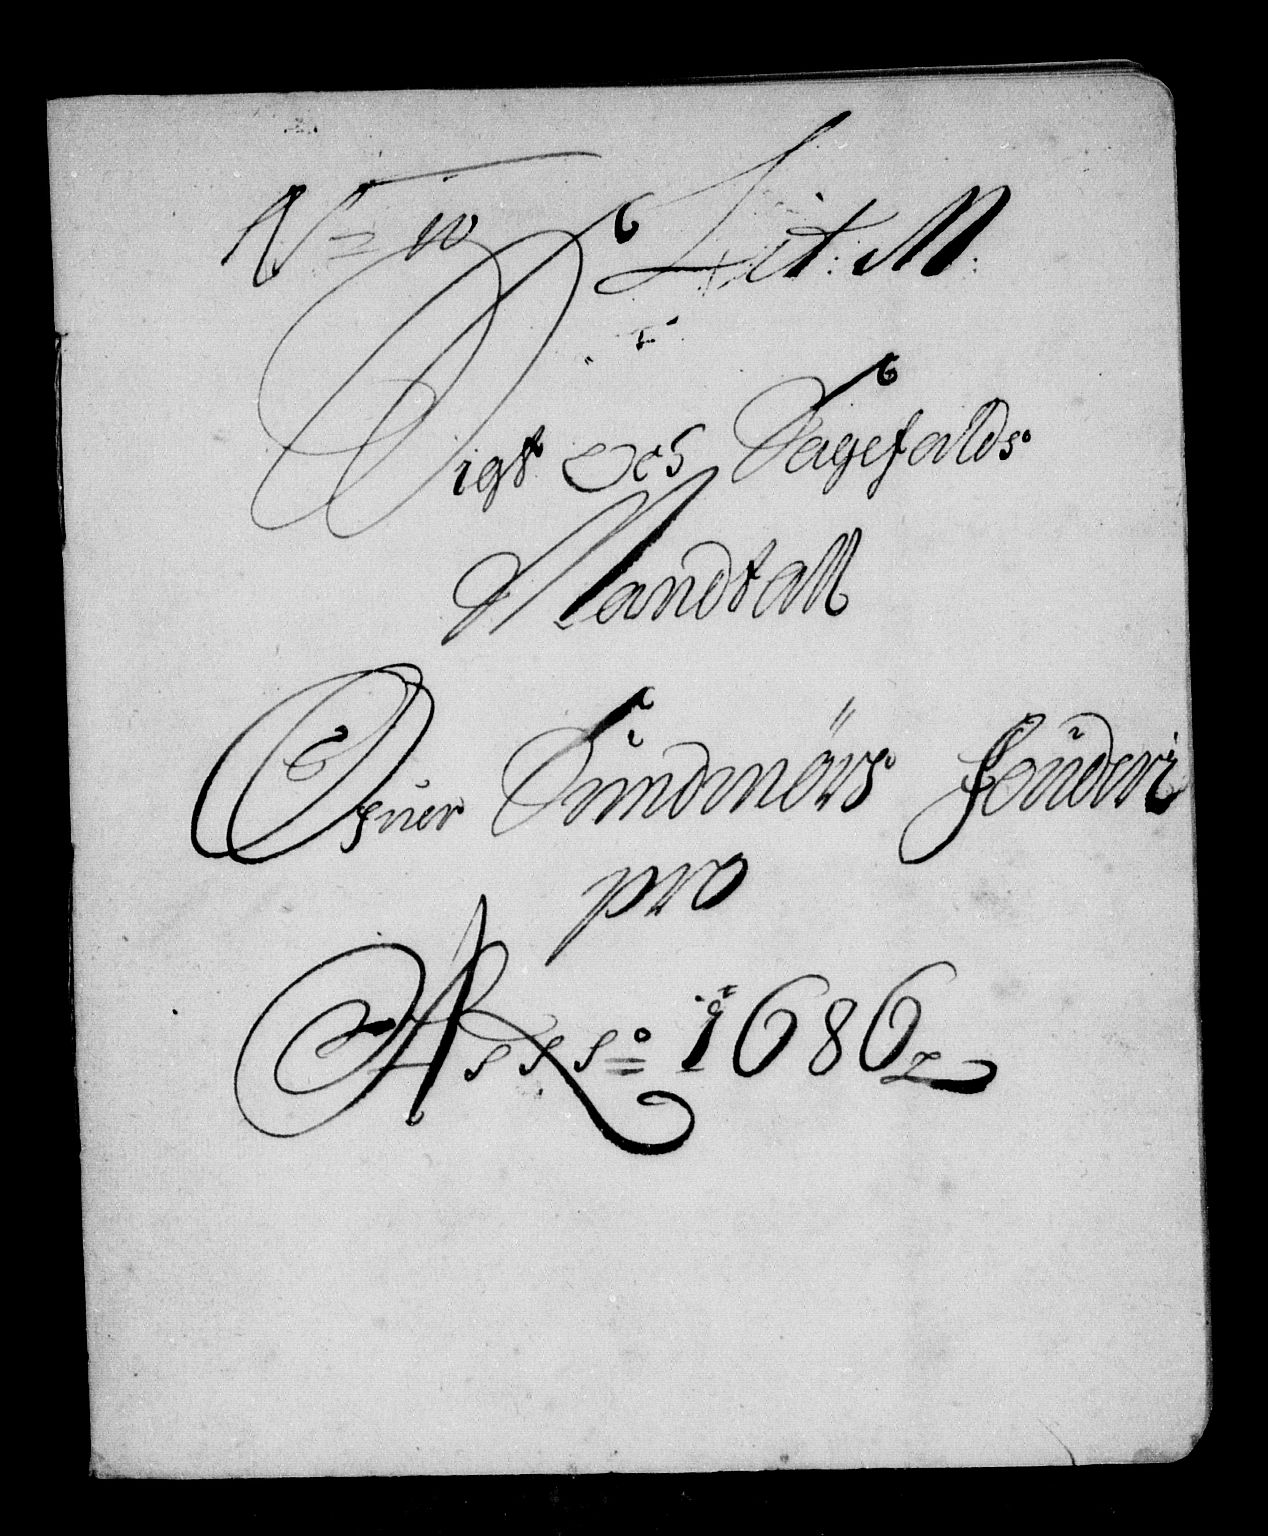 No 10 Lit: M:
Sigt och Sagefalds
Mandtall
Ofuer Sundmörs fougderi
pro
Anno 1686